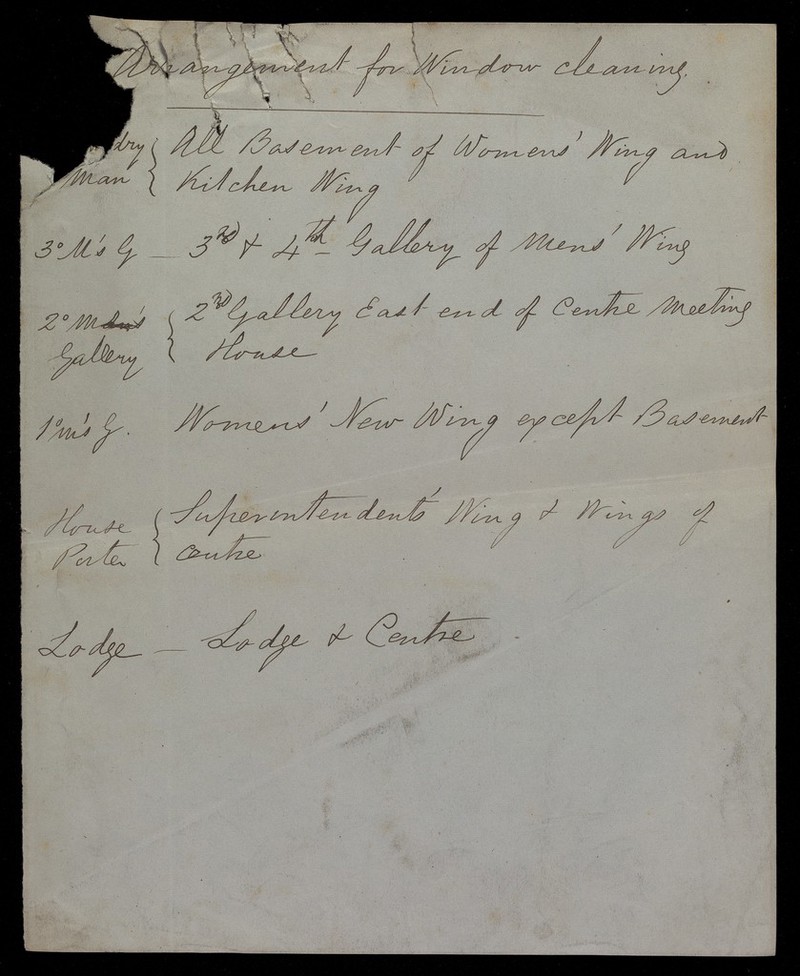 Arrangement for Window cleaning.
dry { All Basement of Womens' Wing and
Man Kitchen Wing
3º M's G — 3rd & 4th Gallery of Mens' Wing
2º Men's { 2nd Gallery East end of Centre Meeting
Gallery House
1º m's G. Womens' New Wing except Basement
House { Superintendent's Wing & Wings of
Porter Centre
Lodge — Lodge & Centre